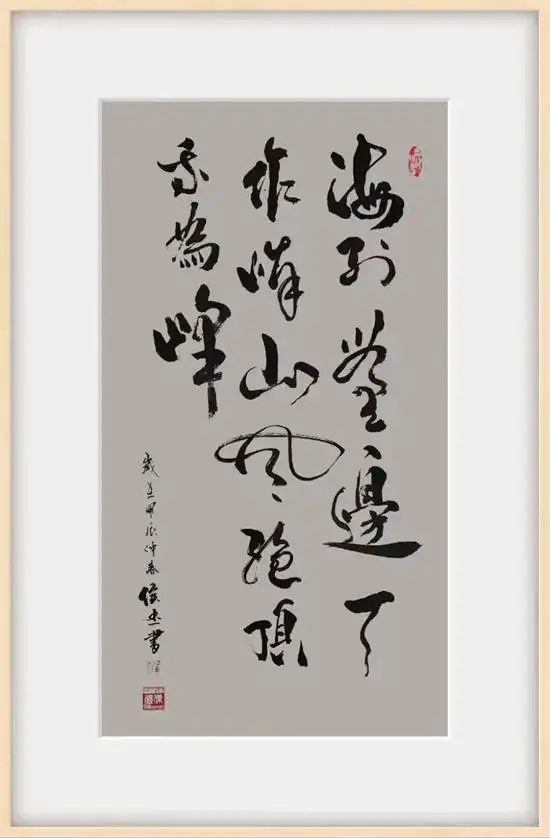 海到無邊天
作岸山登絕頂
我為峰
歲在甲辰仲春侯 書